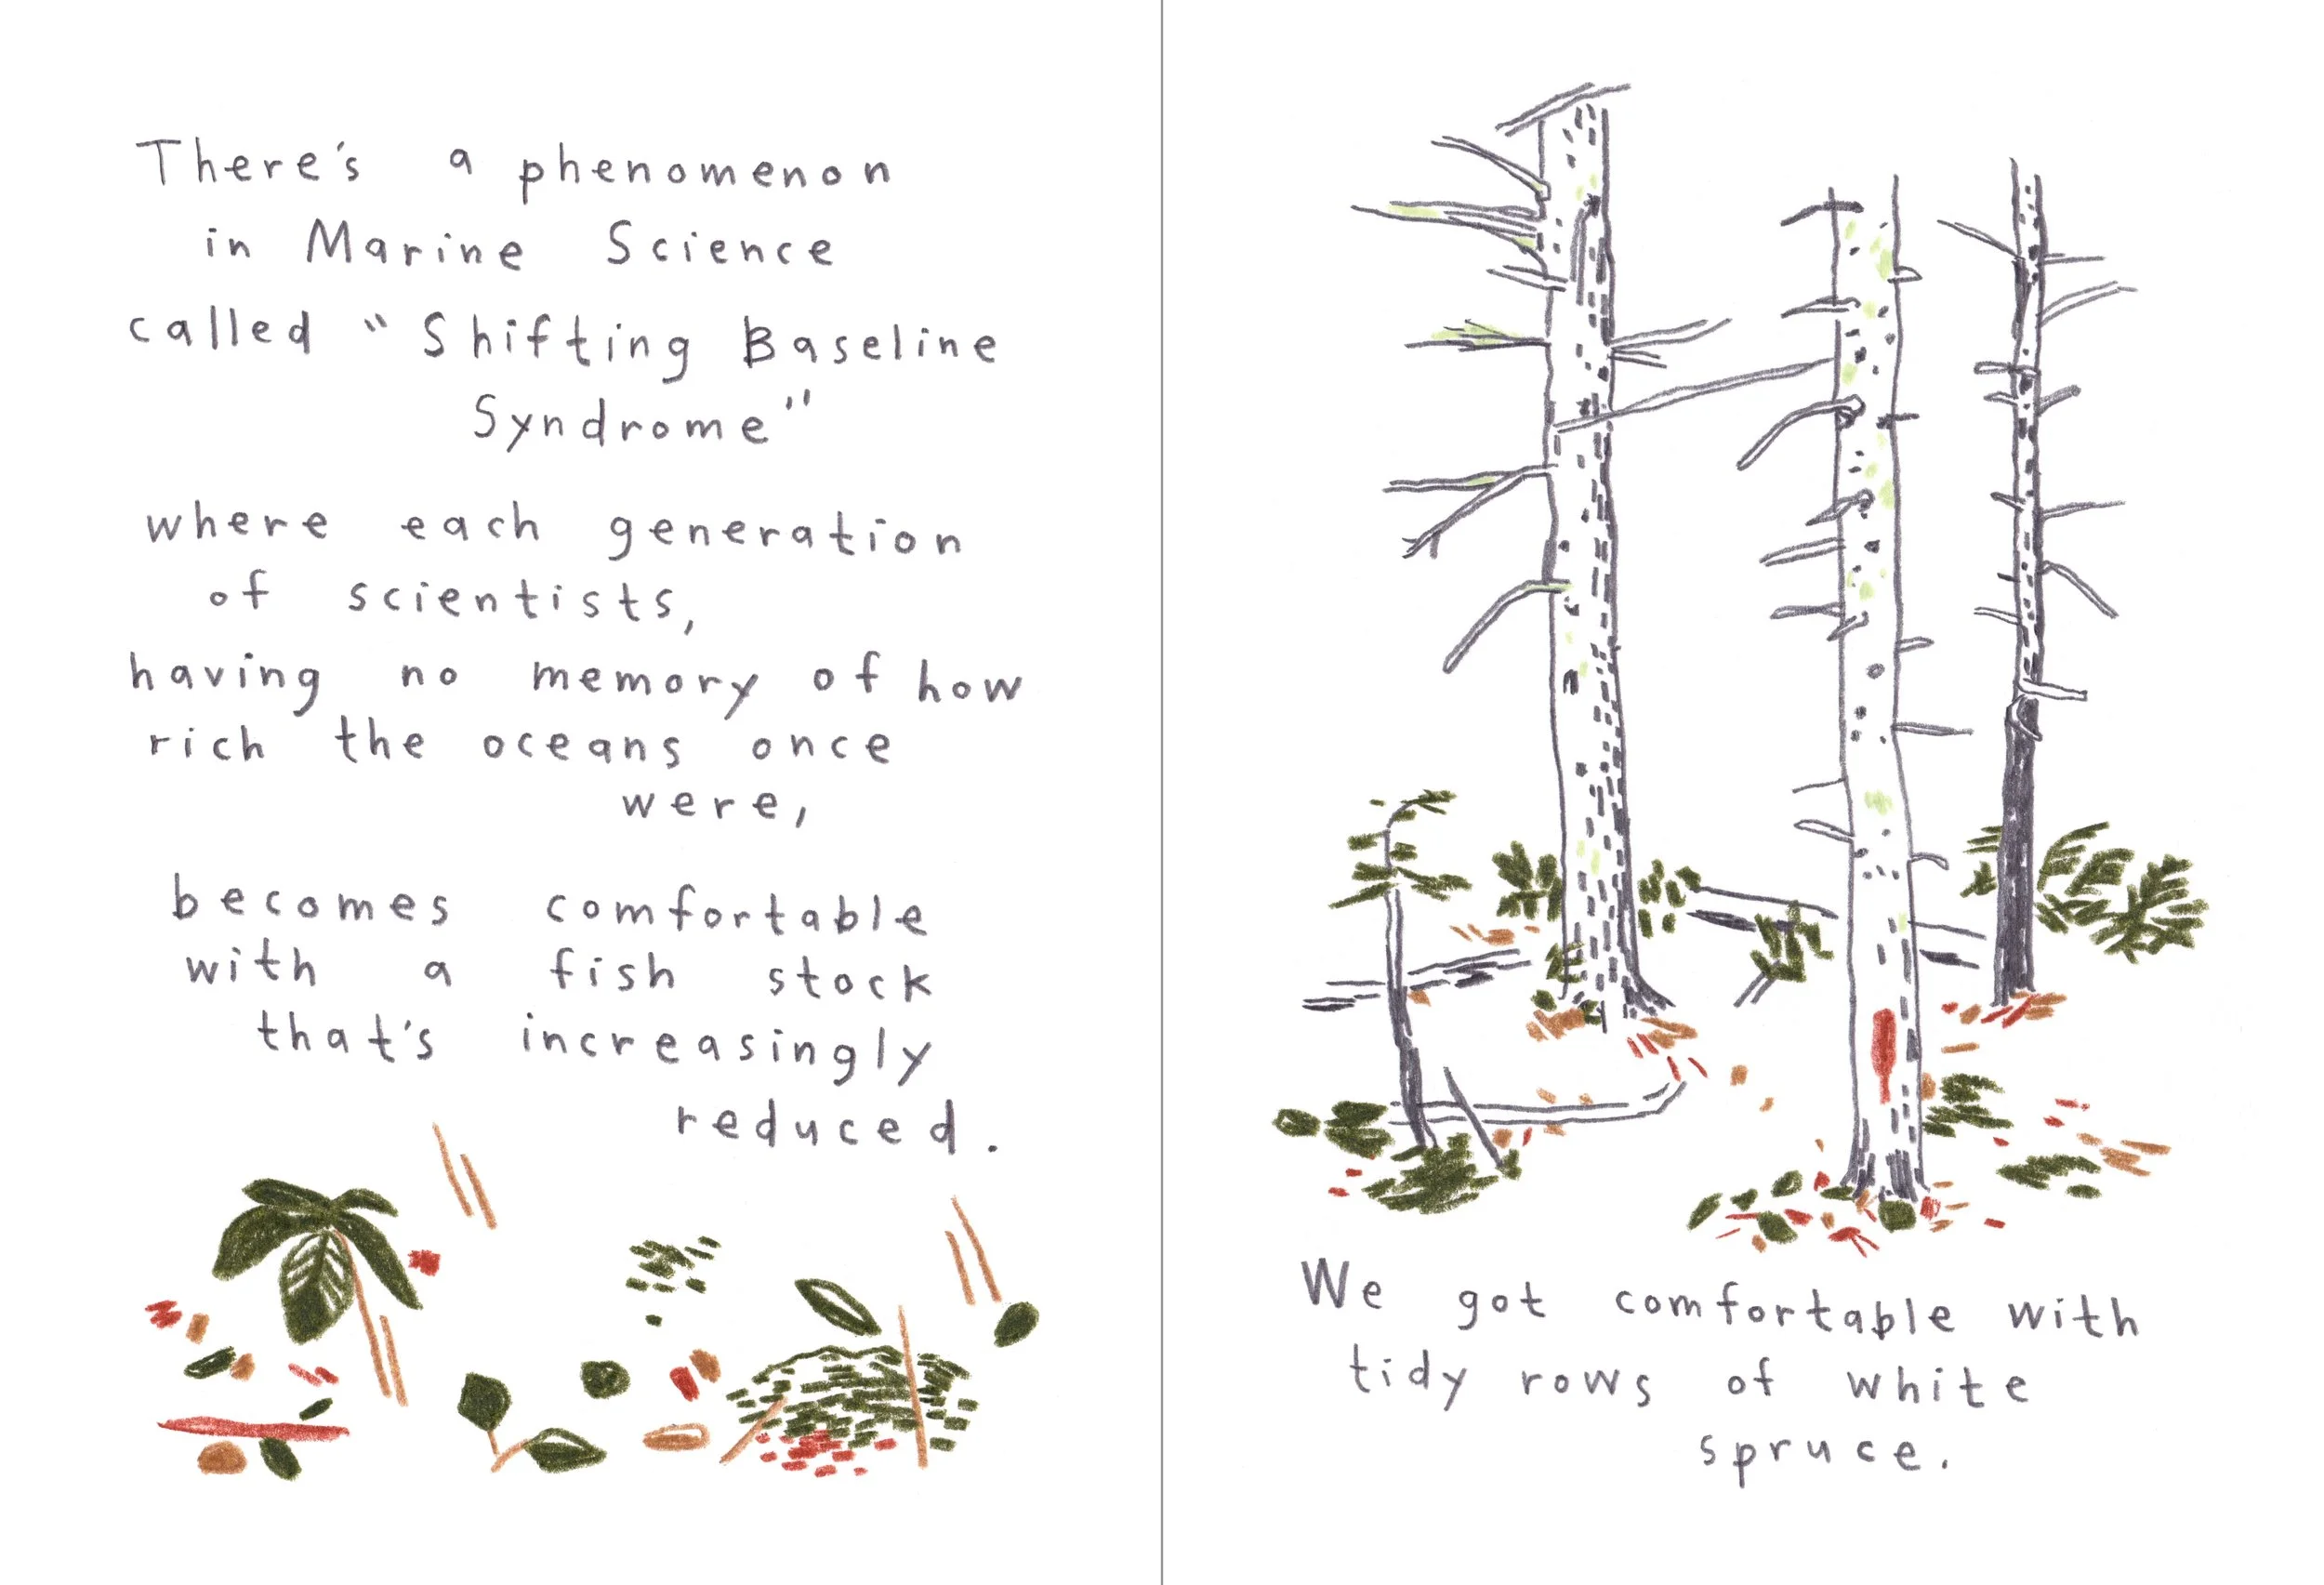 There's a phenomenon
in Marine Science
called "Shifting Baseline
Syndrome"
where each generation
of scientists,
having no memory of how
rich the oceans once
were,
becomes comfortable
with a fish stock
that's increasingly
reduced.
We got comfortable with
tidy rows of white
spruce.